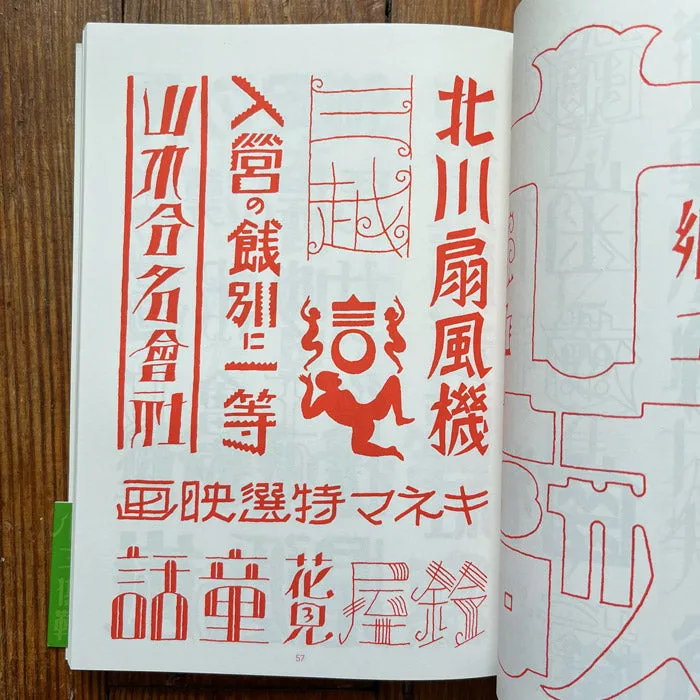 北川扇風機
三越
入營の餞別に一等
山木合名會社
キネマ特選映画
鈴屋
花見
童話
57